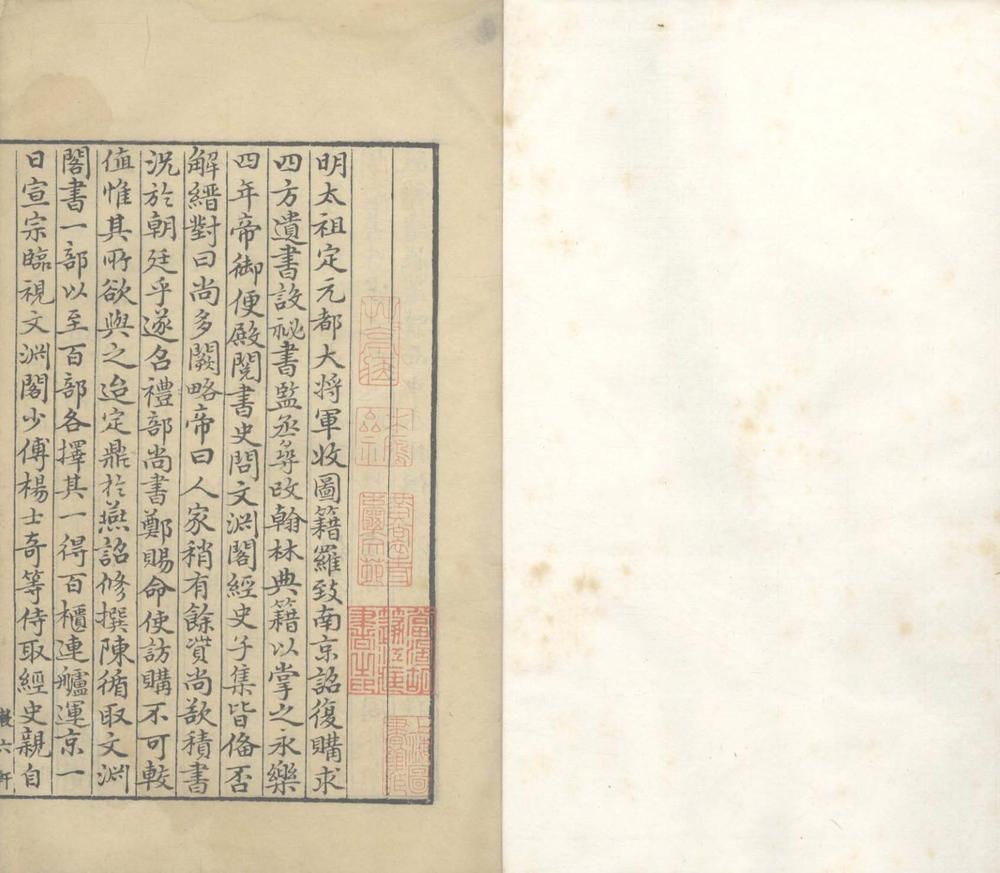 明太祖定元都大将軍收圖籍羅致南京詔復購求
四方遺書設祕書監丞尋改翰林典籍以掌之永樂
四年帝御便殿閱書史問文渊閣經史子集皆俻否
解縉對曰尚多闕略帝曰人家稍有餘貲尚欲積書
況於朝廷乎遂召禮部尚書鄭賜命使訪購不可較
值惟其所欲與之迨定鼎於燕詔修撰陳循取文渊
閣書一部以至百部各擇其一得百櫃連艫運京一
日宣宗臨視文渊閣少傅楊士奇等侍取經史親自